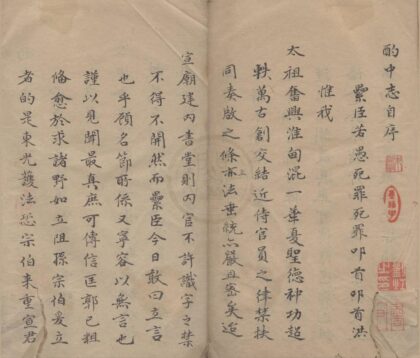 酌中志自序
纍臣若愚死罪死罪叩首叩首洪
惟我
太祖奮興淮甸混一華夏聖德神功超
軼萬古創交結近侍官員之律禁扶
同奏啟之條亦法垂統亦嚴且密矣迨
宣廟建內書堂則內官不許識字之禁
不得不開然而纍臣今日敢曰立言
也乎顧名節所係又寧容以無言也
謹以見聞最真庶可傳信匡郭已粗
偹愈於求諸野如立阻孫宗伯爰立
者的是東光護法恐宗伯来重宣君